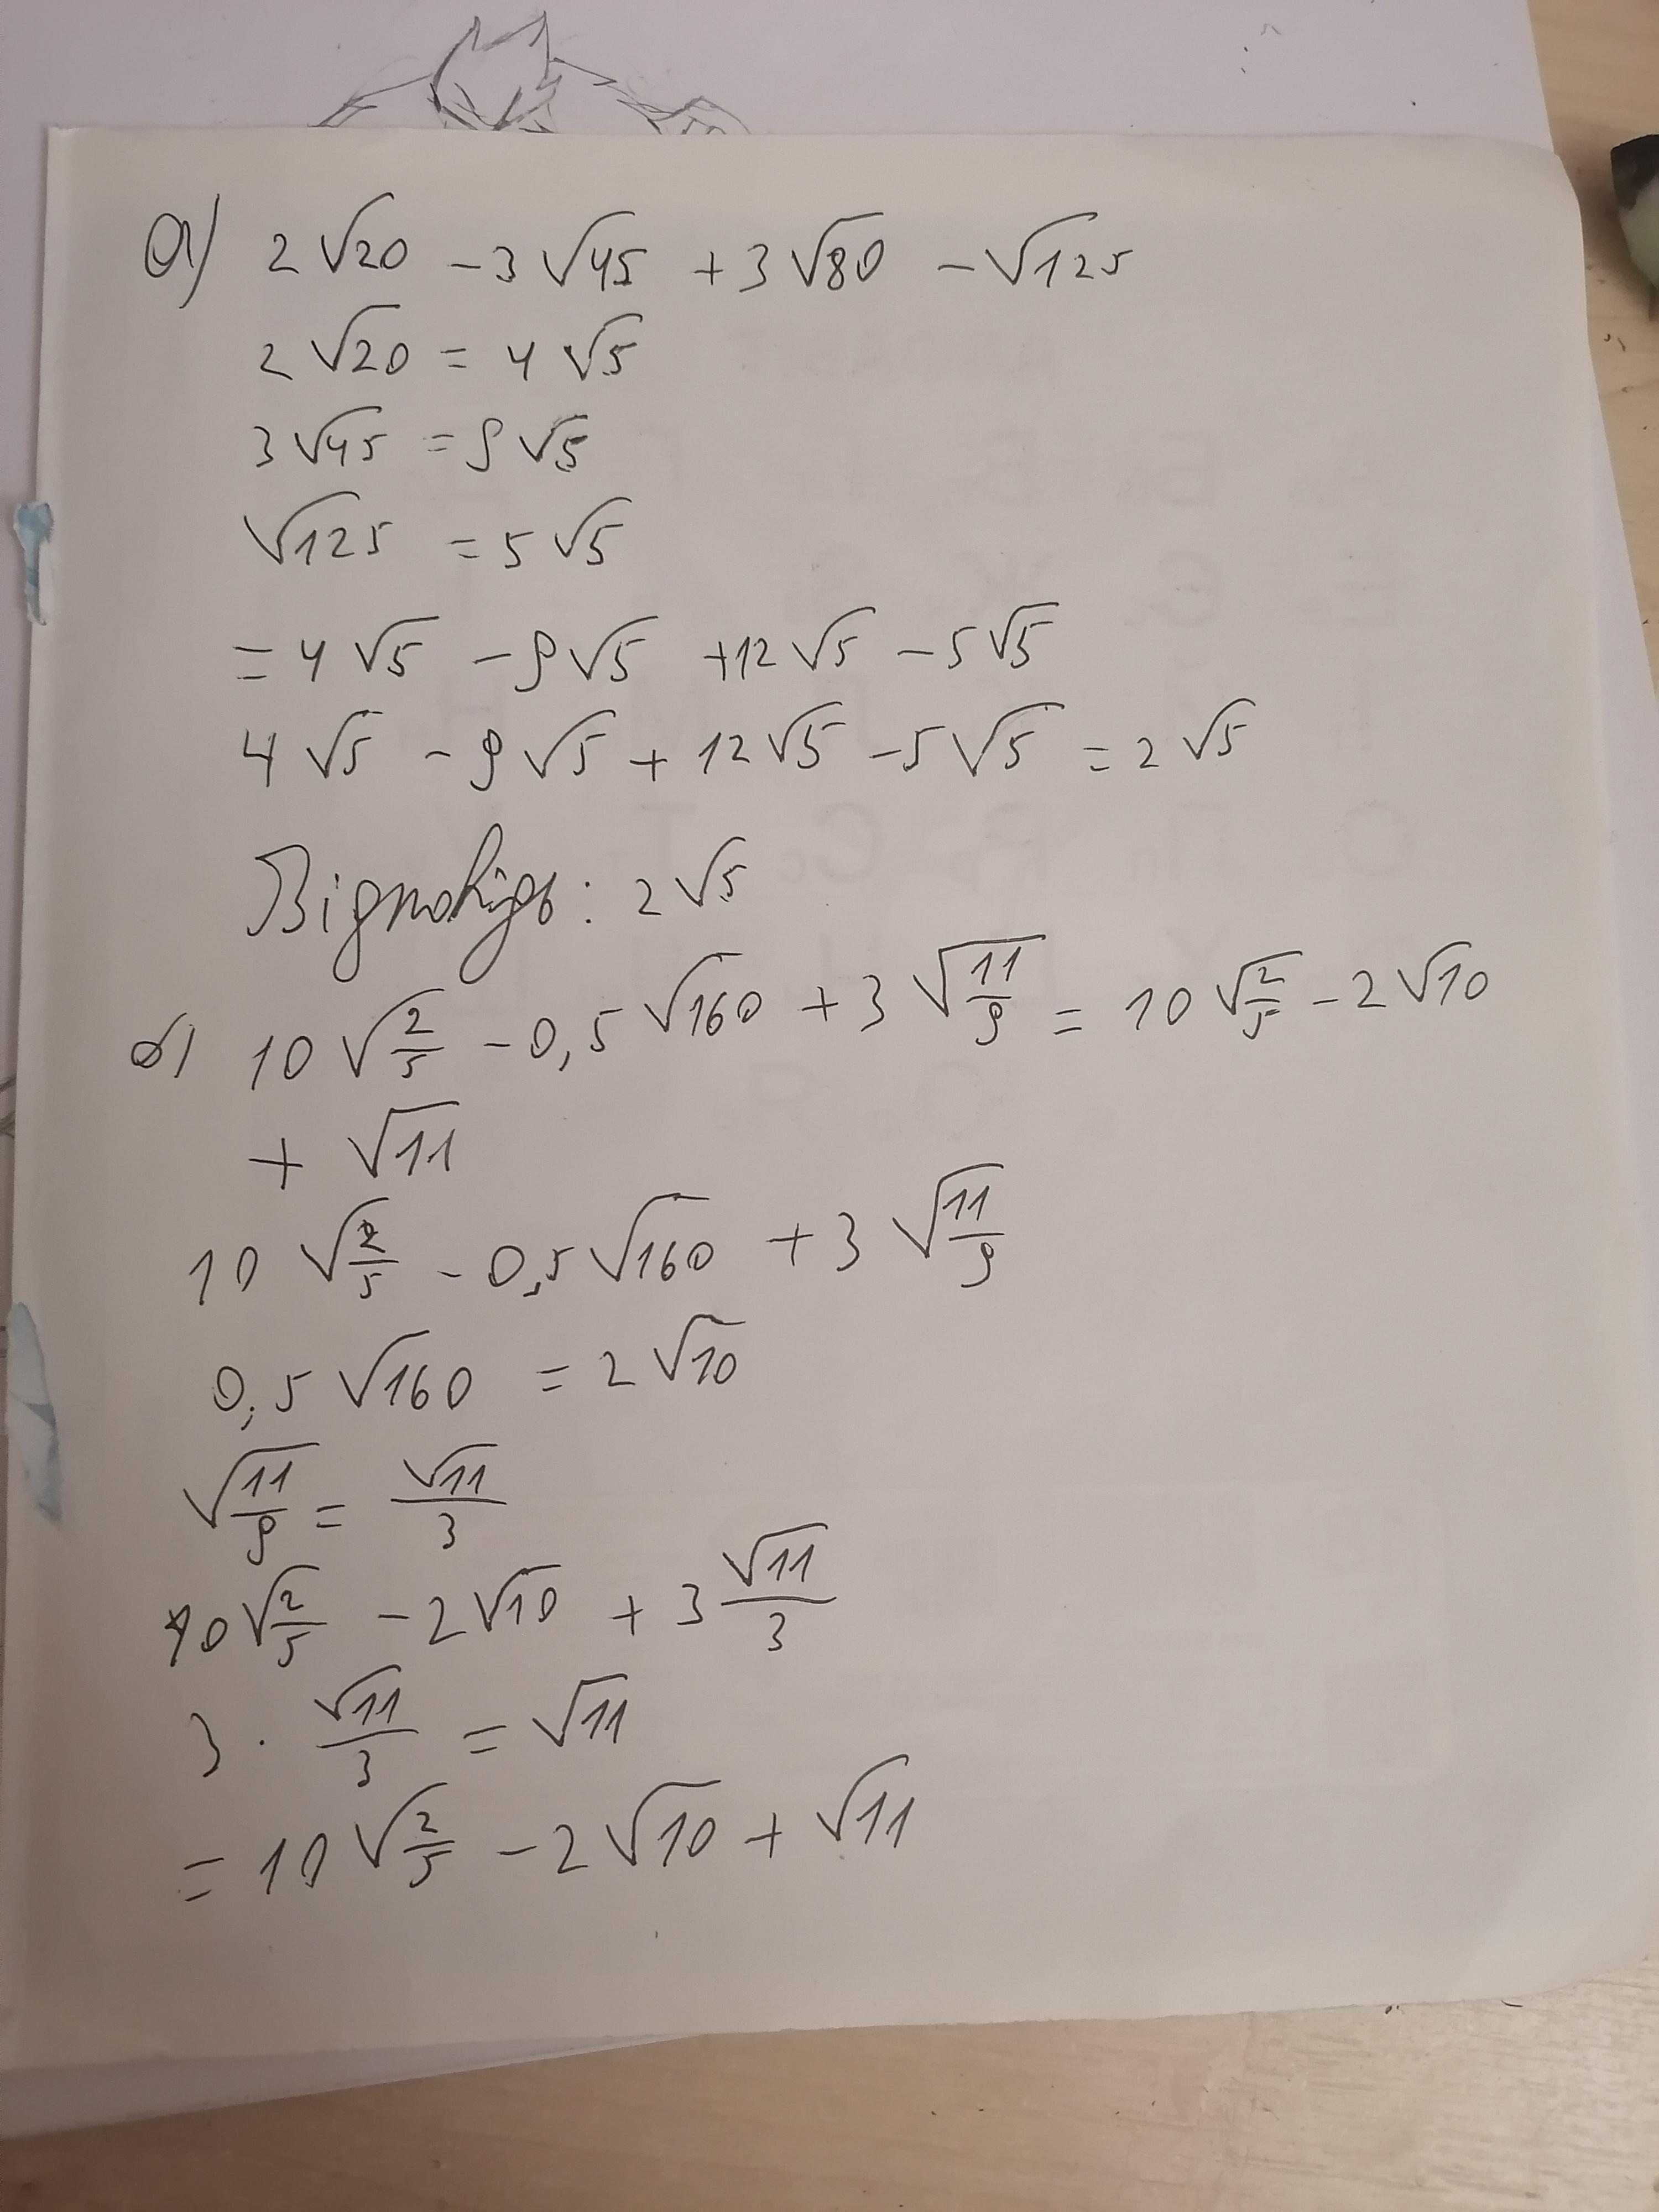 а) 2√20 - 3√45 + 3√80 - √125
2√20 = 4√5
3√45 = 9√5
√125 = 5√5
= 4√5 - 9√5 + 12√5 - 5√5
4√5 - 9√5 + 12√5 - 5√5 = 2√5
Відповідь: 2√5
б) 10√(2/5) - 0,5√160 + 3√(11/9) = 10√(2/5) - 2√10
+ √11
10√(2/5) - 0,5√160 + 3√(11/9)
0,5√160 = 2√10
√(11/9) = √11/3
10√(2/5) - 2√10 + 3 √11/3
3 · √11/3 = √11
= 10√(2/5) - 2√10 + √11